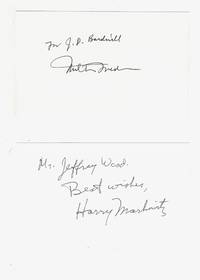 For J. D. Bardwell
Milton Friedman
Mr. Jeffrey Wood.
Best wishes,
Harry Markowitz